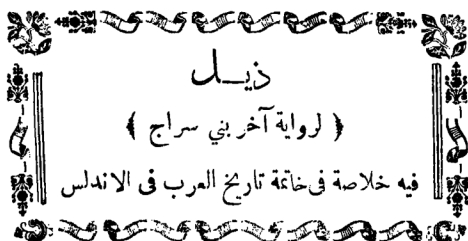 ذيــل
﴿ لرواية آخر بني سراج ﴾
فيه خلاصة فى خاتمة تاريخ العرب فى الاندلس